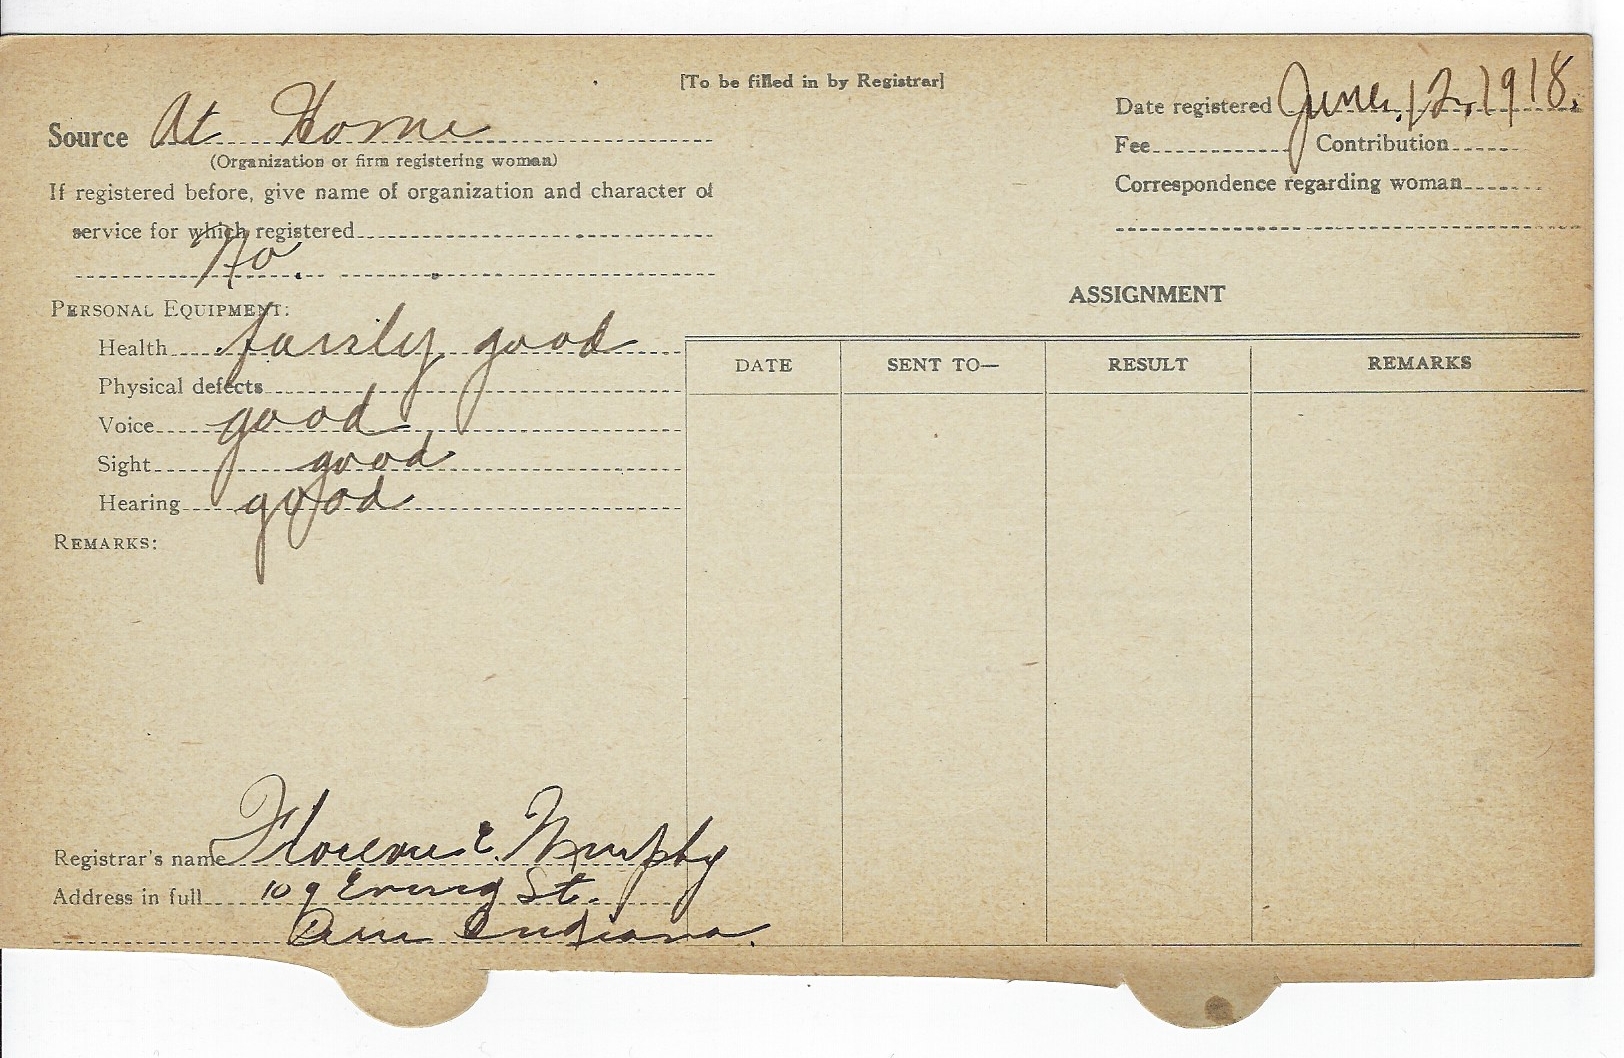 [To be filled in by Registrar]
Source At Home
(Organization or firm registering woman)
If registered before, give name of organization and character of
service for which registered
No.
Date registered June 12, 1918.
Fee Contribution
Correspondence regarding woman
PERSONAL EQUIPMENT:
Health fairly good
Physical defects
Voice good
Sight good
Hearing good
REMARKS:
ASSIGNMENT
DATE SENT TO— RESULT REMARKS
Registrar's name Florence E. Murphy
Address in full 109 Ewing St.
Indiana.